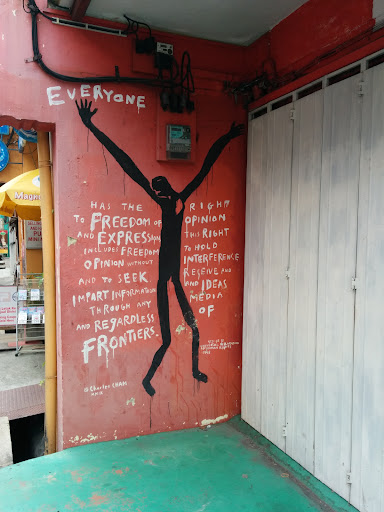 EVERYONE
HAS THE RIGHT
TO FREEDOM OF OPINION
AND EXPRESSION THIS RIGHT
INCLUDES FREEDOM TO HOLD
OPINION WITHOUT INTERFERENCE
AND TO SEEK RECEIVE AND
IMPART INFORMATION AND IDEAS
THROUGH ANY MEDIA
AND REGARDLESS OF
FRONTIERS.
© Charles CHAM
Magnum